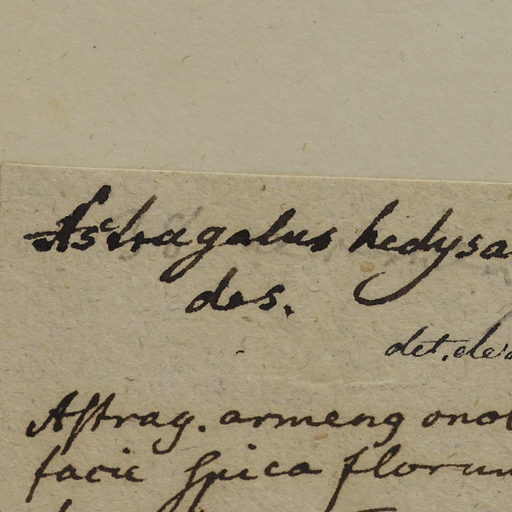 Astragalus hedysa
des.
det. de
Astrag. armeng onob
facie spica florum